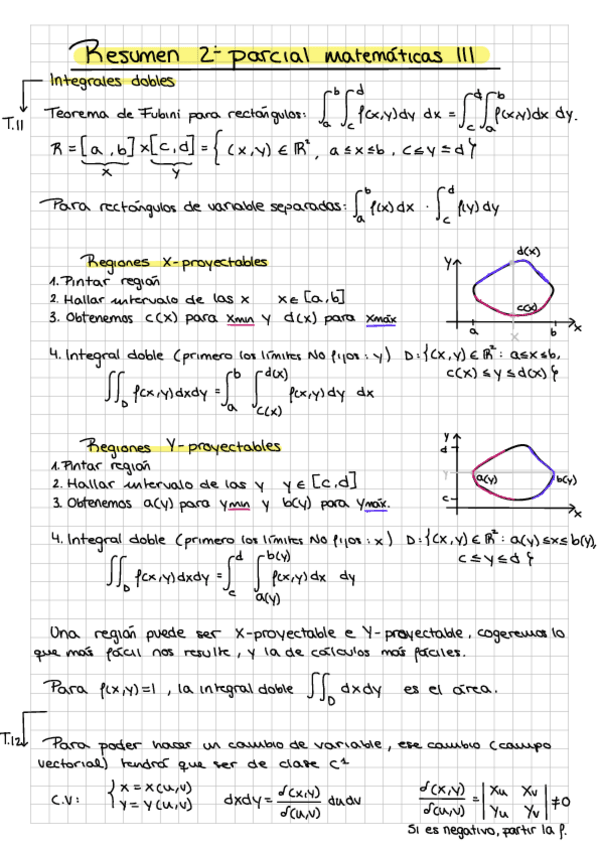 Resumen 2º parcial matemáticas III
Integrales dobles
T.11
Teorema de Fubini para rectángulos: ∫_a^b ∫_c^d f(x,y)dy dx = ∫_c^d ∫_a^b f(x,y)dx dy.
R = [a,b] x [c,d] = { (x,y) ∈ ℝ², a ≤ x ≤ b, c ≤ y ≤ d }
x y
Para rectángulos de variable separadas: ∫_a^b f(x)dx · ∫_c^d f(y)dy
Regiones X-proyectables
1. Pintar región
2. Hallar intervalo de las x x ∈ [a,b]
3. Obtenemos c(x) para xmin y d(x) para xmáx
y d(x) c(x) a x b x
4. Integral doble (primero los límites No fijos: y) D:{(x,y) ∈ ℝ²: a≤x≤b,
c(x) ≤ y ≤ d(x)}
∬_D f(x,y)dxdy = ∫_a^b ∫_c(x)^d(x) f(x,y)dy dx
Regiones Y-proyectables
1. Pintar región
2. Hallar intervalo de las y y ∈ [c,d]
3. Obtenemos a(y) para ymin y b(y) para ymáx.
y d y a(y) b(y) c x
4. Integral doble (primero los límites No fijos: x) D:{(x,y) ∈ ℝ²: a(y) ≤ x ≤ b(y),
c ≤ y ≤ d}
∬_D f(x,y)dxdy = ∫_c^d ∫_a(y)^b(y) f(x,y)dx dy
Una región puede ser X-proyectable e Y-proyectable, cogeremos lo
que más fácil nos resulte, y la de cálculos más fáciles.
Para f(x,y)=1, la integral doble ∬_D dxdy es el área.
T.12
Para poder hacer un cambio de variable, ese cambio (campo
vectorial) tendrá que ser de clase C¹
C.V: { x = x(u,v) y = y(u,v) dxdy = ∂(x,y)/∂(u,v) dudv ∂(x,y)/∂(u,v) = | xu xv yu yv | ≠0
Si es negativo, partir la f.